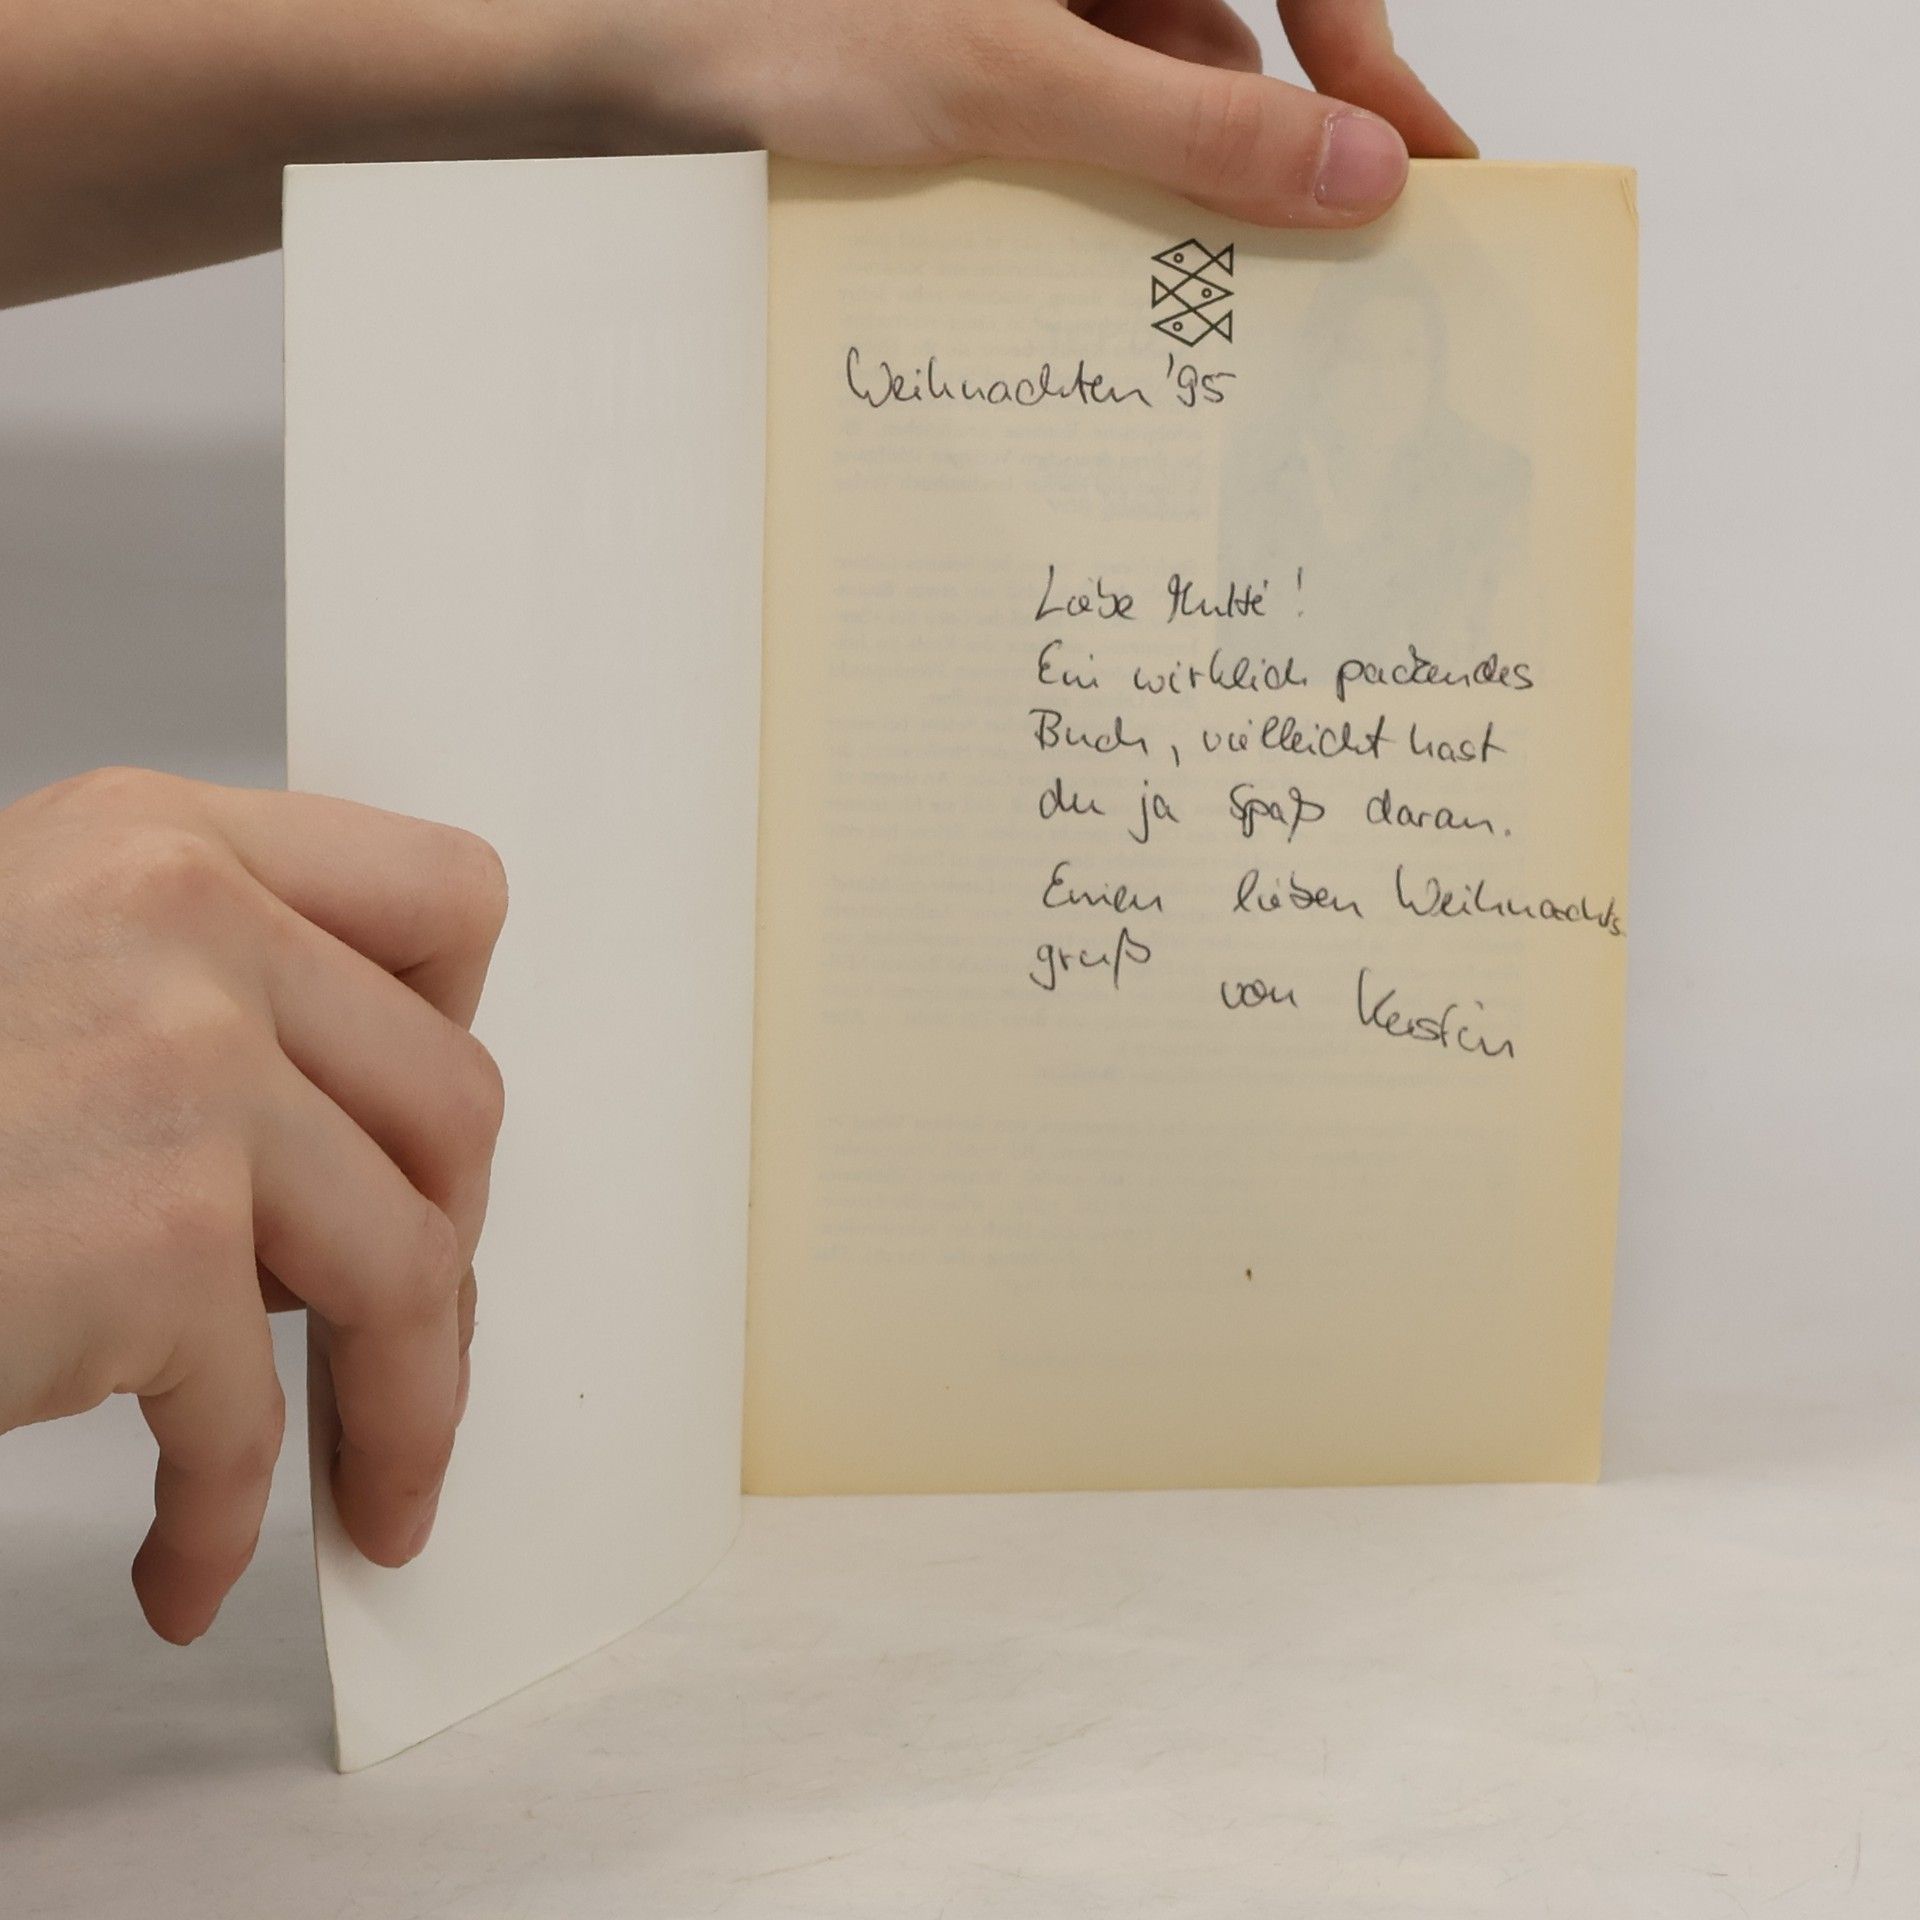 Weihnachten '95
Liebe Mutti!
Ein wirklich packendes
Buch, vielleicht hast
du ja Spaß daran.
Einen lieben Weihnachts-
gruß
von Kerstin